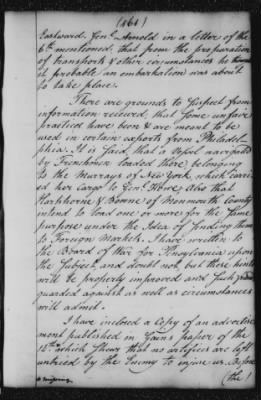 (464)
Eastward. Genl. Arnold in a letter of the
6th mentioned, that from the preparation
of transports & other circumstances he
it probable an embarkation was about
to take place.
There are grounds to suspect from
information received that some unfair
practices have been & are meant to be
used in certain exports from Philadel-
phia. It is said, that a Vessel navigated
by Frenchmen loaded there, belonging
to the Murrays of New York, which carri-
ed her Cargo to Genl. Howe, Also that
Harpborne & Bowne of Monmouth County
intend to load one or more for the same
purpose under the Idea of sending them
to Foreign Markets. I have written to
the Board of War for Pensylvania upon
the subject, and doubt not, but these hints
will be properly improved and such
guarded against as well as circumstances
will admit.
I have inclosed a Copy of an advertise-
ment published in Gaines paper of the
12th. which shews that no artifices are left
untried by the Enemy to injure us. Before
(the)